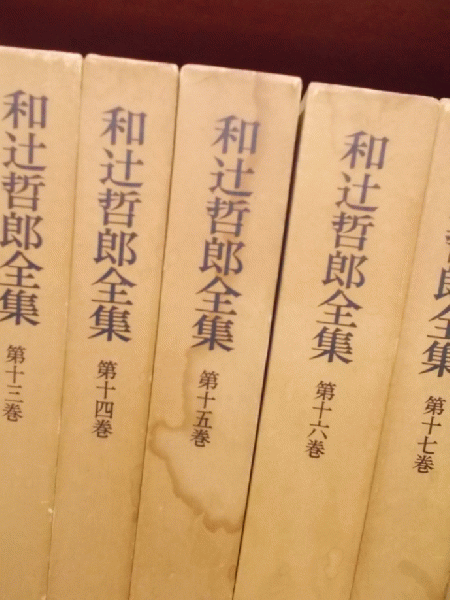 和辻哲郎全集
第十三巻
和辻哲郎全集
第十四巻
和辻哲郎全集
第十五巻
和辻哲郎全集
第十六巻
郎全集
第十七巻